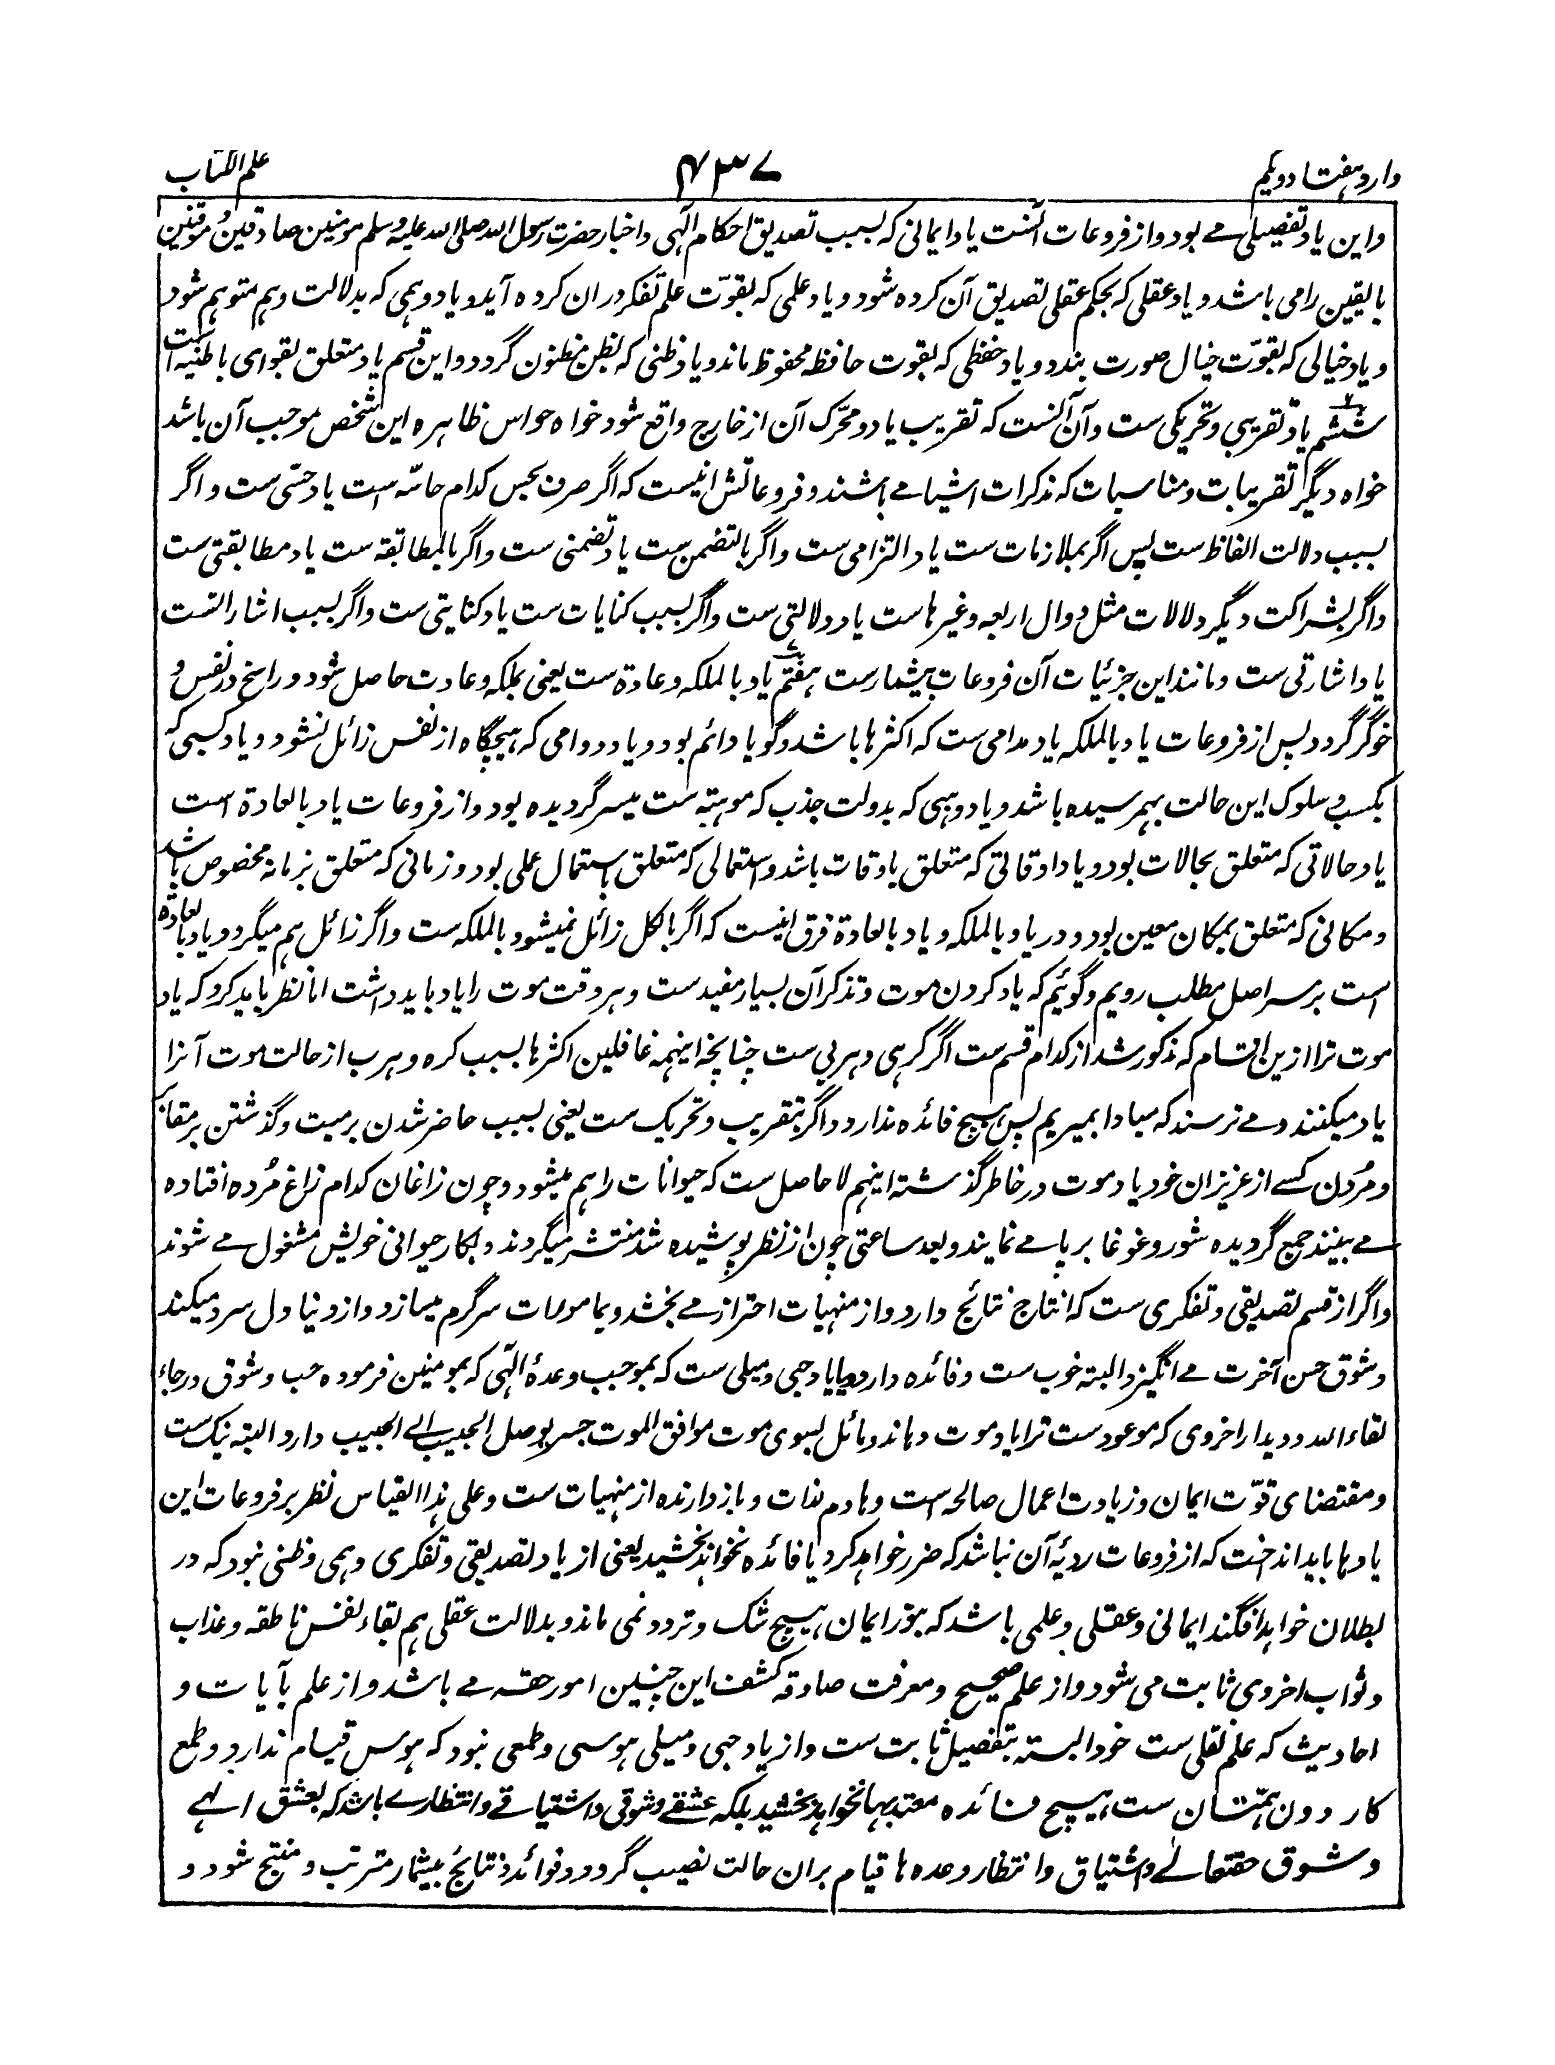 وارد هفتاد و یکم ۴۳۷ علم الکتاب
و این یاد تفصیلی مے بود و از فروعات آنست یاد ایمانی که بسبب تصدیق احکام الٓهی و اخبار حضرت رسول الله صلی الله علیه وسلم مومنین صادقین و موقنین
بالیقین را می باشد و یاد عقلی که بحکم عقلی تصدیق آن کرده شود و یاد علمی که بقوّت علم تفکر در ان کرده آید و یاد وهمی که بدلالت وهم متوهم شود
و یاد خیالی که بقوّت خیال صورت بندد و یاد حفظی که بقوت حافظه محفوظ ماند و یاد ظنی که بظن مظنون گردد و این قسم یاد متعلق بقوای باطنیه است
ششم یاد تقریبی و تحریکی ست و آن آنست که تقریب یاد و محرّک آن از خارج واقع شود خواه حواس ظاهره این شخص موجب آن باشد
خواه دیگر تقریبات و مناسبات که مذکرات اشیا مے باشند و فروعاتش اینست که اگر صرف بحس کدام حاسّه است یاد حسّی ست و اگر
بسبب دلالت الفاظ ست پس اگر بملازمات ست یاد التزامی ست و اگر بالتضمن ست یاد تضمنی ست و اگر بالمطابقه ست یاد مطابقتی ست
و اگر بشراکت دیگر دلالات مثل دوال اربعه و غیرها ست یاد دلالتی ست و اگر بسبب کنایات ست یاد کنایتی ست و اگر بسبب اشارات ست
یاد اشارتی ست و مانند این جزئیات آن فروعات بیشمار ست هفتم یاد بالملکه و عادة ست یعنی بملکه و عادت حاصل شود و راسخ در نفس و
خوگر گردد پس از فروعات یاد بالملکه یاد مدامی ست که اکثرها باشد و گویا دائم بود و یاد دوامی که هیچگاه از نفس زائل نشود و یاد کسبی که
بکسب و سلوک این حالت بهم رسیده باشد و یاد وهبی که بدولت جذب که موهبته ست میسر گردیده بود و از فروعات یاد بالعادة است
یاد حالاتی که متعلق بحالات بود و یاد اوقاتی که متعلق باوقات باشد و استعمالی که متعلق باستعمال عملی بود و زمانی که متعلق بزمانه مخصوص باشد
و مکانی که متعلق بمکان معین بود و در یاد بالملکه و یاد بالعادة فرق اینست که اگر بالکل زائل نمیشود بالملکه ست و اگر زائل هم میگردد یاد بالعادة
است بر سر اصل مطلب رویم و گوئیم که یاد کردن موت و تذکر آن بسیار مفید ست و هر وقت موت را یاد باید داشت اما نظر باید کرد که یاد
موت ترا ازین اقسام که مذکور شد از کدام قسم ست اگر کرهی و هربی ست چنانچه اینهمه غافلین اکثرها بسبب کره و هرب از حالت موت آنرا
یاد میکنند و مے ترسند که مبادا بمیریم پس هیچ فائده ندارد و اگر بتقریب و تحریک ست یعنی بسبب حاضر شدن بر میت و گذشتن بر مقابر
و مُردن کسے از عزیزان خود یاد موت در خاطر گذشته اینهم لا حاصل ست که حیوانات را هم میشود و چون زاغان کدام زاغ مُرده افتاده
مے بینند جمع گردیده شور و غوغا برپا مے نمایند و بعد ساعتی چون از نظر پوشیده شد منتشر میگردند و بکار حیوانی خویش مشغول مے شوند
و اگر از قسم تصدیقی و تفکری ست که انتاج نتائج دارد و از منهیات احتراز مے بخشد و بمامورات سرگرم میسازد و از دنیا دل سرد میکند
و شوق حسن آخرت مے انگیزد البته خوب ست و فائده دارد و یا یاد حبی و میلی ست که بموجب وعدهٔ الٓهی که بمومنین فرموده حب و شوق و رجاء
لقاء الله و دیدار اخروی که موعود ست ترا یاد موت دهاند و مائل بسوی موت موافق الموت جسر یوصل الحبیب الے الحبیب دارد البته نیک ست
و مقتضای قوّت ایمان و زیادت اعمال صالحه است و هادم لذات و باز دارنده از منهیات ست و علی هذا القیاس نظر بر فروعات این
یادها باید انداخت که از فروعات ردیهٔ آن نباشد که ضرر خواهد کرد یا فائده نخواهد بخشید یعنی از یاد تصدیقی و تفکری وهمی و ظنی نبود که در
بطلان خواهد افگند ایمانی و عقلی و علمی باشد که بنور ایمان هیچ شک و تردد نمی ماند و بدلالت عقلی هم بقاء نفس ناطقه و عذاب
و ثواب اخروی ثابت می شود و از علم صحیح و معرفت صادقه کشف این چنین امور حقه مے باشد و از علم بآیات و
احادیث که علم نقلی ست خود البسته بتفصیل ثابت ست و از یاد حبی و میلی هوسی و طمعی نبود که هوس قیام ندارد و طمع
کار دون همتان ست هیچ فائده معتد بها نخواهد بخشید بلکه عشقے و شوقی و اشتیاقے و انتظارے باشد که بعشق الهے
و شوق حقتعالے و اشتیاق و انتظار وعده ها قیام بران حالت نصیب گردد و فوائد و نتائج بیشمار مترتب و منتج شود و